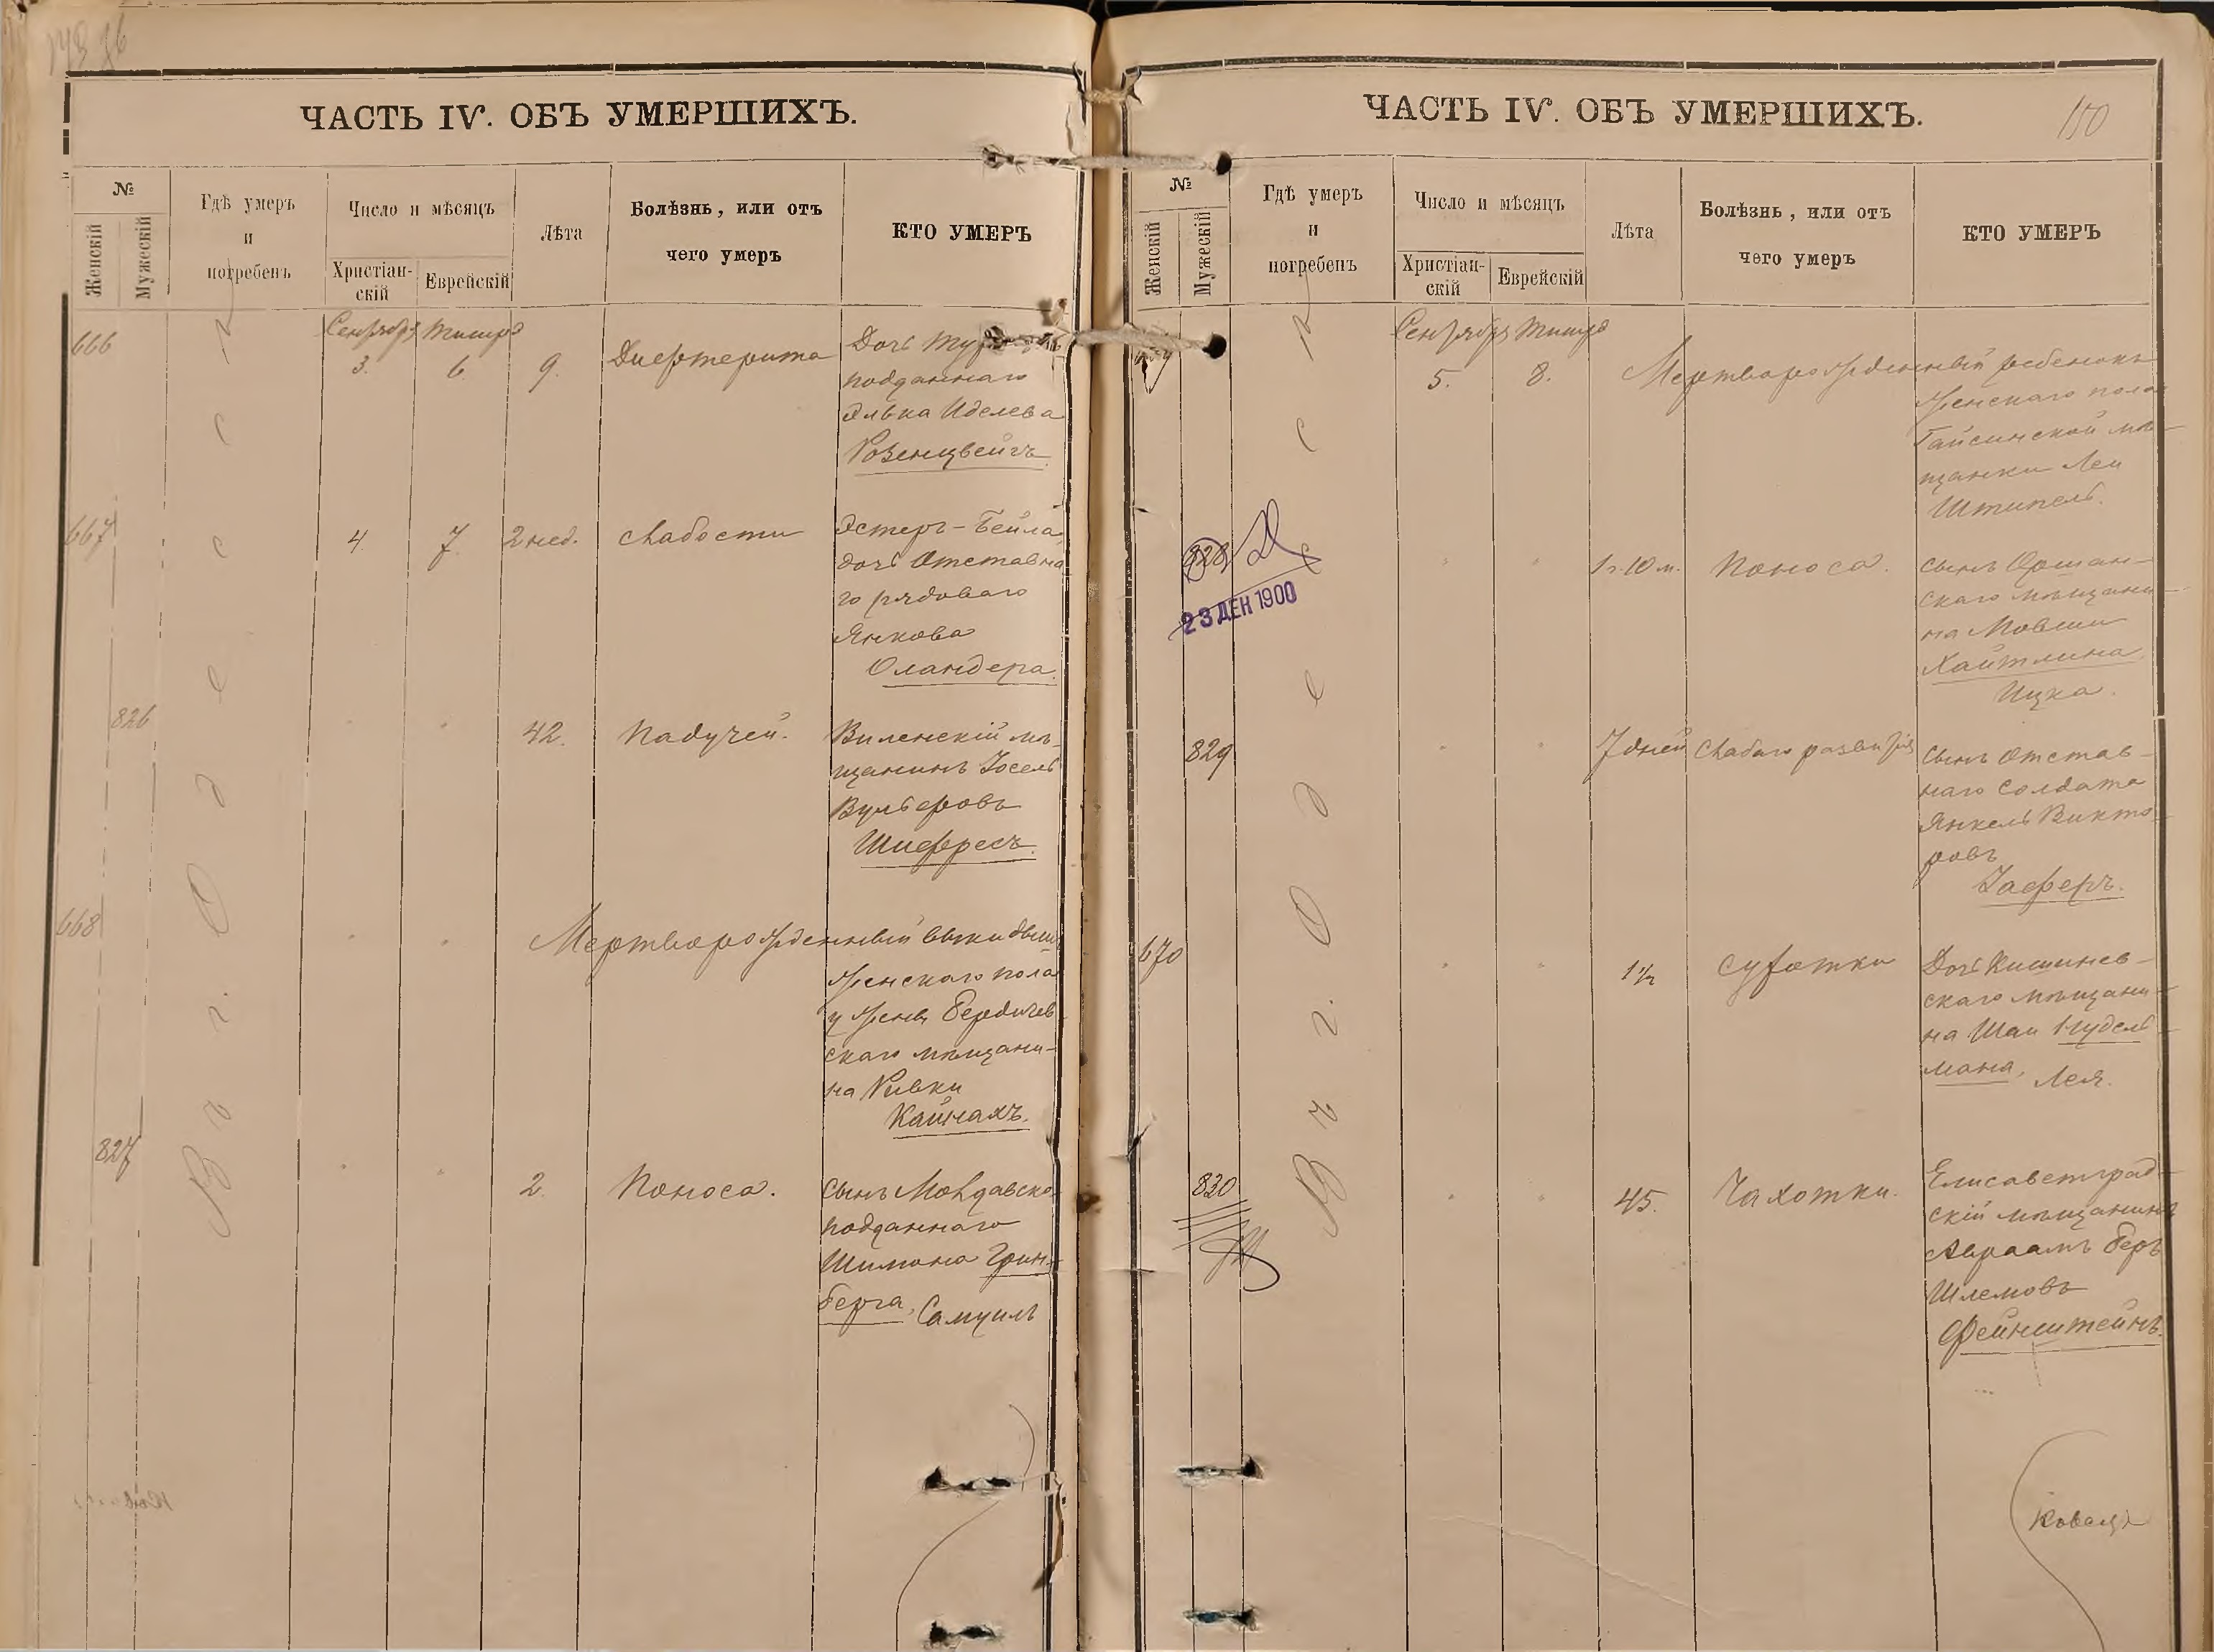 148 96
ЧАСТЬ IV. ОБЪ УМЕРШИХЪ.
№
Женскій
Мужескій
Гдѣ умеръ
и
погребенъ
Число и мѣсяцъ
Христіан-
скій
Еврейскій
Лѣта
Болѣзнь, или отъ
чего умеръ
КТО УМЕРЪ
Въ г. Одессѣ
Сентября Тишре
666 3. 6 9. Дифтерита Дочь
подданнаго
Элька Иделева
Розенцвейгъ.
667 4 7 2 нед. Слабости Эстеръ-Бейла,
дочь Отставна
го рядоваго
Янкова
Оландера.
826 " " 42. Падучей. Виленскій мѣ-
щанинъ Іосель
Вульфовъ
Шифресъ.
668 " " Мертворожденный выкидышъ
женскаго пола
у жены Бердичев
скаго мѣщани-
на Ривки
Кайнахъ.
827 " " 2. Поноса. Сынъ Молдавско
подданнаго
Шимона Грин-
берга, Самуилъ
ЧАСТЬ IV. ОБЪ УМЕРШИХЪ.
150
№
Женскій
Мужескій
Гдѣ умеръ
и
погребенъ
Число и мѣсяцъ
Христіан-
скій
Еврейскій
Лѣта
Болѣзнь, или отъ
чего умеръ
КТО УМЕРЪ
Въ г. Одессѣ
Сентября Тишре
5. 8. Мертворожденный ребенокъ
женскаго пола
Гайсинской мѣ-
щанки Леи
Штипель.
828 " " 1 г. 10 м. Поноса. Сынъ Оршан-
скаго мѣщани-
на Мовши
Хайтлина
Ицка.
23 ДЕК 1900
829 " " 7 дней Слабаго развитія Сынъ Отстав-
наго Солдата
Янкель Викто-
ровъ
Заферъ.
670 " " 1 1/2 Сухотки Дочь Кишинев-
скаго мѣщани-
на Шаи Нудель
мана, Лея.
830 " " 45. Чахотки. Елисаветград-
скій мѣщанинъ
Авраамъ Беръ
Шлемовъ
Фейнштейнъ.